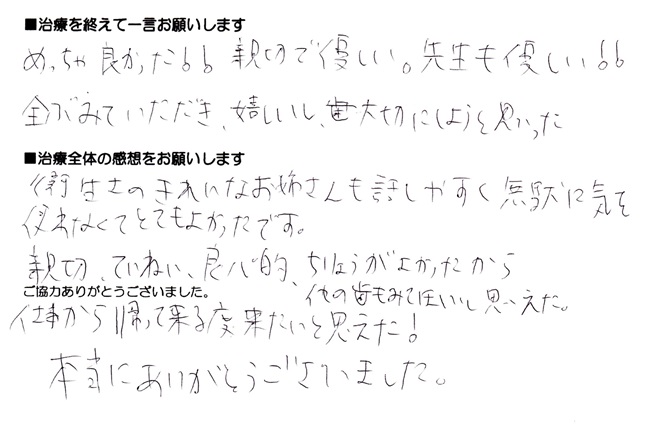 ■治療を終えて一言お願いします
めっちゃ良かった!! 親切で優しい。先生も優しい!!
全ぶみていただき、嬉しいし、歯大切にしようと思った
■治療全体の感想をお願いします
衛生士さんのきれいなお姉さんも話しやすく無駄に気を
使わなくてとてもよかったです。
親切、ていねい、良心的、ちりょうがよかったから
他の歯もみてほいし思いえた。
ご協力ありがとうございました。
仕事から帰って来る度来たいと思えた!
本当にありがとうございました。